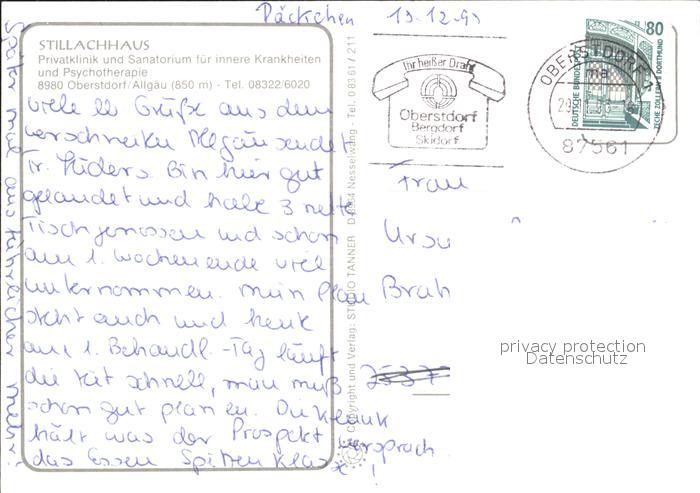 Päckchen 13.12.93
STILLACHHAUS
Privatklinik und Sanatorium für innere Krankheiten
und Psychotherapie
8980 Oberstdorf/Allgäu (850 m) - Tel. 08322/6020
viele lb Grüße aus dem
verschneiten Allgäu sendet
Bin hier gut
gelandet und habe 3 nette
Tischgenossen und schon
am 1. Wochenende viel
unternommen. Mein Plan
steht auch und heute
am 1. Behandl.-Tag läuft
die Zeit schnell, man muß
schon gut planen. Die Klinik
hält was der Prospekt versprach
das Essen Spitzenklasse!
Später mal ausführlicher mehr.
© Copyright und Verlag: STUDIO TANNER Nesselwang - Tel. 08361/211
Ihr heißer Draht
Oberstdorf
Bergdorf
Skidorf
OBERSTDORF
ma
87561
80
DEUTSCHE BUNDESPOST
ZECHE ZOLLERN II DORTMUND
Frau
Ursu
Brah
privacy protection
Datenschutz